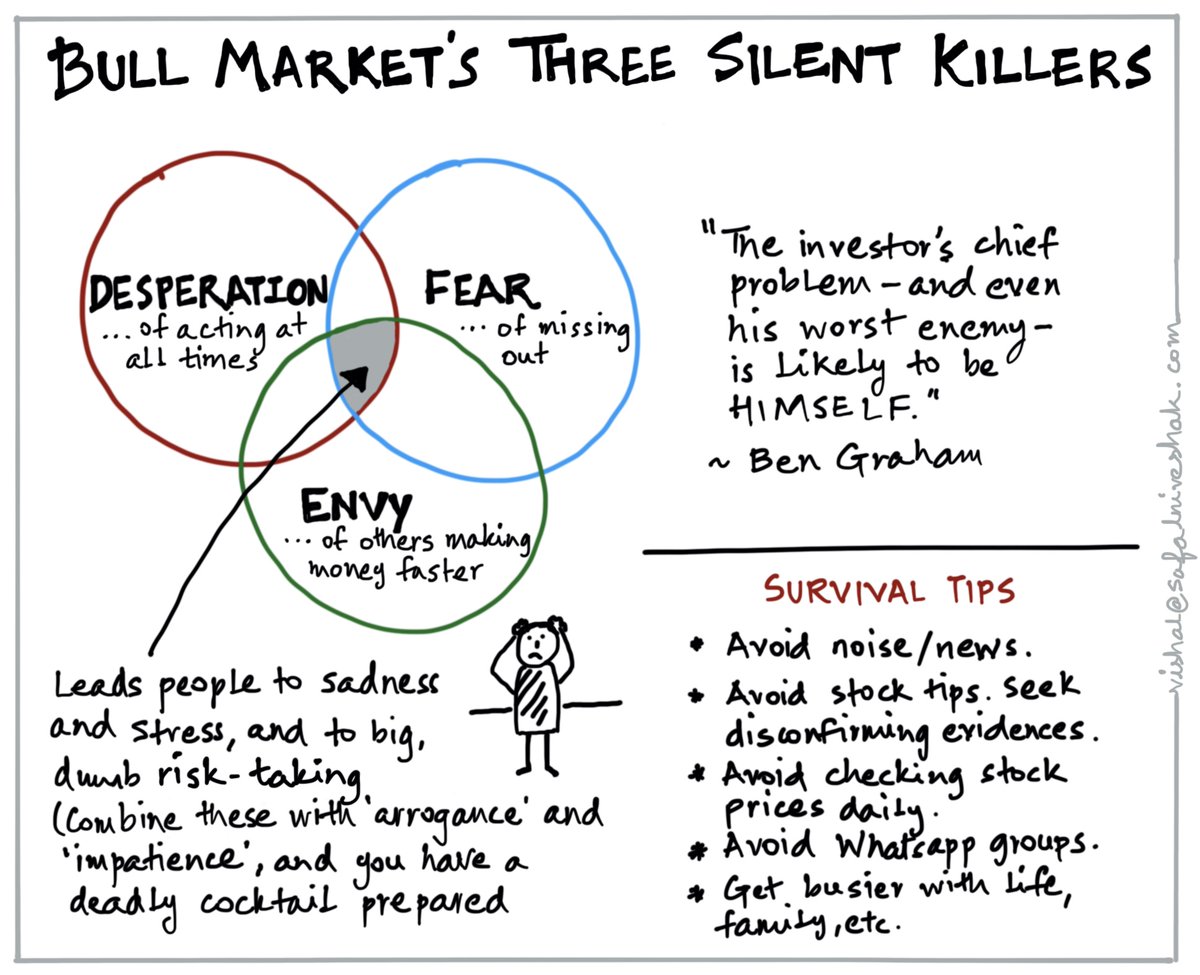 BULL MARKET'S THREE SILENT KILLERS
DESPERATION
... of acting at
all times
FEAR
... of missing
out
ENVY
... of others making
money faster
Leads people to sadness
and stress, and to big,
dumb risk-taking
(Combine these with 'arrogance' and
'impatience', and you have a
deadly cocktail prepared
"The investor's chief
problem - and even
his worst enemy -
is likely to be
HIMSELF."
~ Ben Graham
SURVIVAL TIPS
* Avoid noise/news.
* Avoid stock tips. Seek
disconfirming evidences.
* Avoid checking stock
prices daily.
* Avoid Whatsapp groups.
* Get busier with life,
family, etc.
vishal@safalniveshak.com